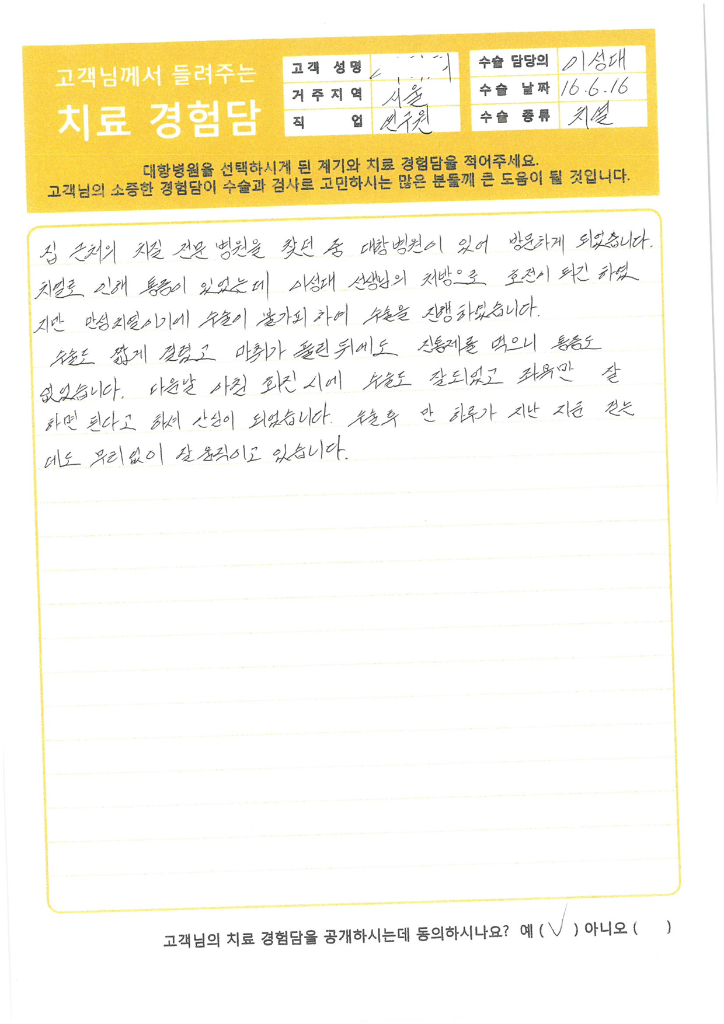 고객님께서 들려주는
치료 경험담
고객 성명
거주지역 서울
직 업 연구원
수술 담당의 이성대
수술 날짜 16.6.16
수술 종류 치열
대항병원을 선택하시게 된 계기와 치료 경험담을 적어주세요.
고객님의 소중한 경험담이 수술과 검사로 고민하시는 많은 분들께 큰 도움이 될 것입니다.
집 근처의 치질 전문 병원을 찾던 중 대항병원이 있어 방문하게 되었습니다.
치열로 인해 통증이 있었는데 이성대 선생님의 처방으로 호전이 되긴 하였
지만 만성치열이기에 수술이 불가피 하여 수술을 진행하였습니다.
수술도 짧게 걸렸고 마취가 풀린 뒤에도 진통제를 먹으니 통증도
없었습니다. 다음날 아침 회진 시에 수술도 잘되었고 좌욕만 잘
하면 된다고 하셔 안심이 되었습니다. 수술후 만 하루가 지난 지금 걷는
데도 무리없이 잘 움직이고 있습니다.
고객님의 치료 경험담을 공개하시는데 동의하시나요? 예 (✓) 아니오 ( )